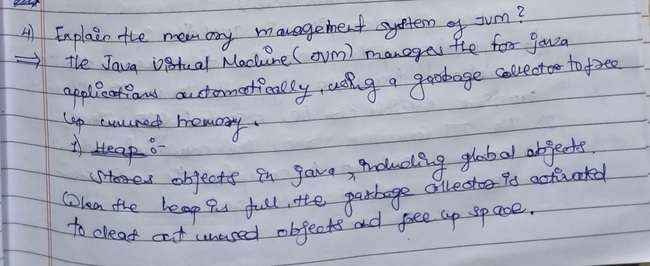 4) Explain the memory management system of JVM?
⇒ The Java Virtual Machine (JVM) manages the for java
applications automatically, using a garbage collector to free
up unused memory.
1) Heap :-
Stores objects in java, including global objects.
When the heap is full, the garbage collector is activated
to clear out unused objects and free up space.